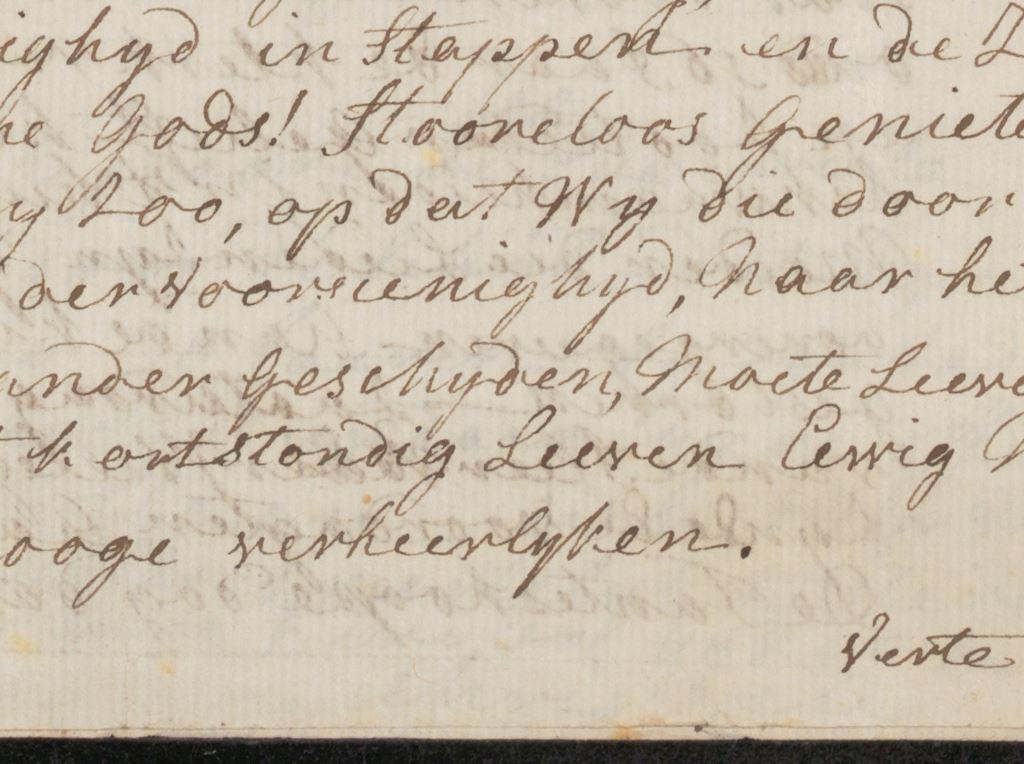 ighyd in Stappen en de
ne Gods! Stooreloos Geniete
y Zoo, op dat Wy die door
der Voorsienighyd, Naar he
ander Geschyden, Moete Leeve
kortstondig Leeven Eewig
ooge verheerlyken.
Verte